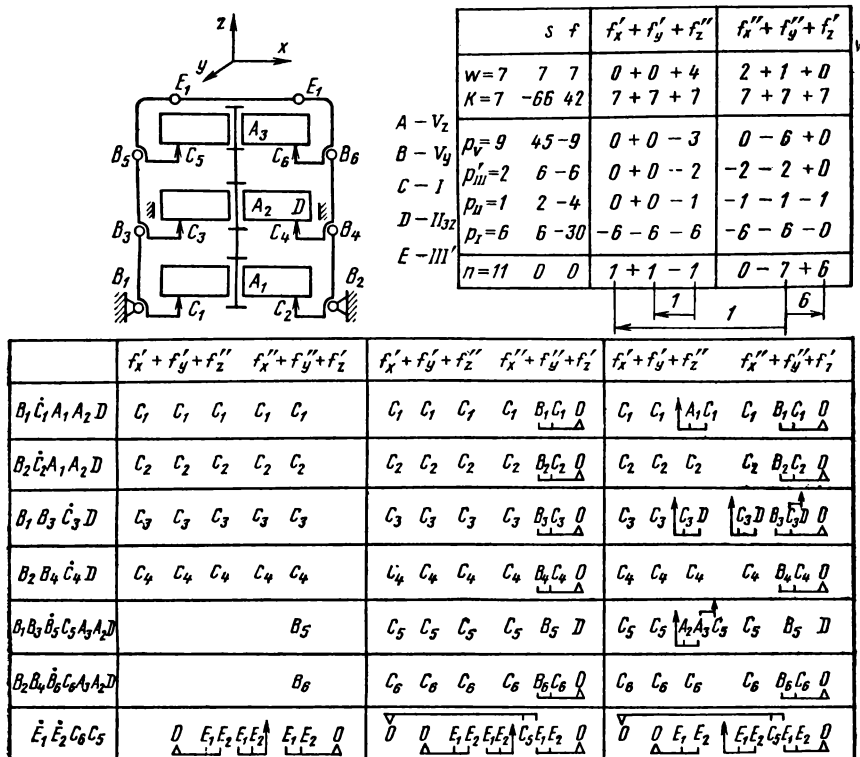 z
x
y
E₁ E₁
A₃
B₅ C₅ C₆ B₆
A₂ D
B₃ C₃ C₄ B₄
B₁ A₁ B₂
C₁ C₂
A – V_z
B – V_y
C – I
D – II₃₂
E – III′
s f f′ₓ + f′ᵧ + f″_z f″ₓ + f″ᵧ + f′_z
w=7 7 7 0 + 0 + 4 2 + 1 + 0
K=7 -66 42 7 + 7 + 7 7 + 7 + 7
p_V=9 45 -9 0 + 0 – 3 0 – 6 + 0
p′_III=2 6 -6 0 + 0 – 2 –2 – 2 + 0
p_II=1 2 -4 0 + 0 – 1 –1 – 1 – 1
p_I=6 6 -30 –6 – 6 – 6 –6 – 6 – 0
n=11 0 0 1 + 1 – 1 0 – 7 + 6
1 1 6
f′ₓ + f′ᵧ + f″_z f″ₓ + f″ᵧ + f′_z f′ₓ + f′ᵧ + f″_z f″ₓ + f″ᵧ + f′_z f′ₓ + f′ᵧ + f″_z f″ₓ + f″ᵧ + f′_z
B₁Ċ₁A₁A₂D C₁ C₁ C₁ C₁ C₁ C₁ C₁ C₁ C₁ B₁C₁ 0 C₁ C₁ A₁C₁ C₁ B₁C₁ 0
B₂Ċ₂A₁A₂D C₂ C₂ C₂ C₂ C₂ C₂ C₂ C₂ C₂ B₂C₂ 0 C₂ C₂ C₂ C₂ B₂C₂ 0
B₁B₃Ċ₃D C₃ C₃ C₃ C₃ C₃ C₃ C₃ C₃ C₃ B₃C₃ 0 C₃ C₃ C₃D C₃D B₃C₃D 0
B₂B₄Ċ₄D C₄ C₄ C₄ C₄ C₄ C₄ C₄ C₄ C₄ B₄C₄ 0 C₄ C₄ C₄ C₄ B₄C₄ 0
B₁B₃Ḃ₅C₅A₃A₂D B₅ C₅ C₅ C₅ C₅ B₅ D C₅ C₅ A₂A₃C₅ C₅ B₅ D
B₂B₄Ḃ₆C₆A₃A₂D B₆ C₆ C₆ C₆ C₆ B₆C₆ 0 C₆ C₆ C₆ C₆ B₆C₆ 0
Ė₁Ė₂C₆C₅ 0 E₁E₂ E₁E₂ E₁E₂ 0 0 0 E₁E₂ E₁E₂ C₅E₁E₂ 0 0 0 E₁E₂ E₁E₂ C₅E₁E₂ 0